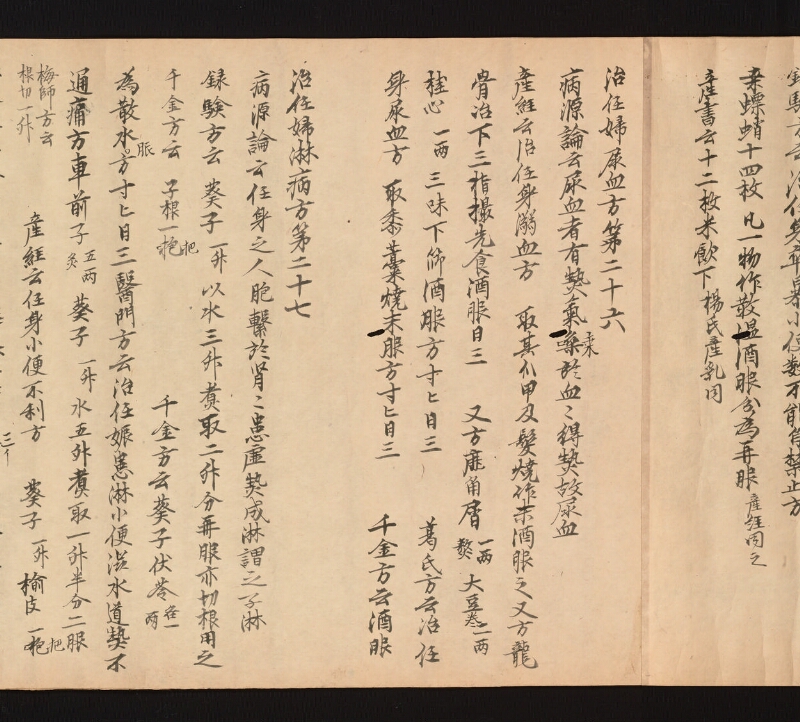 桒螵蛸十四枚 凡一物作散温酒服分為再服産経同之
産書云十二枚米飲下 楊氏産乳同
治任婦尿血方第二十六
病源論云尿血者有热氣乗於血〻得热故尿血
産経云治任身溺血方 取其爪甲及髮燒作末酒服之又方龍
骨冶下三指撮先食酒服日三 又方鹿角屑一两熬 大豆巻一两
桂心一两 三味下篩酒服方寸匕日三 葛氏方云治任
身尿血方 取黍藁燒末服方寸匕日三 千金方云酒服
治任婦淋病方第二十七
病源論云任身之人胞繋於肾〻患虚热成淋謂之子淋
録験方云 葵子一升 以水三升煮取二升分再服亦切根用之
千金方云 子根一把 千金方云葵子伏苓各一两
為散水服方寸匕日三 醫門方云治任娠患淋小便澁水道热不
通痛方 車前子五两炙 葵子一升 水五升煮取一升半分二服
梅師方云根切一升 産経云任身小便不利方 葵子一升 榆皮一把